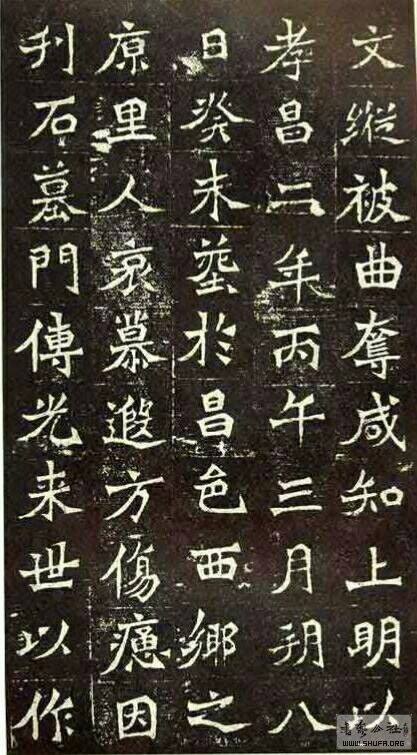 文縱被曲奪咸知上明以
孝昌二年丙午三月朔八
日癸未葬於昌色西鄉之
原里人哀慕遐方傷因
刋石墓門傳光来世以作
公社
WWW.SHUFA.ORG